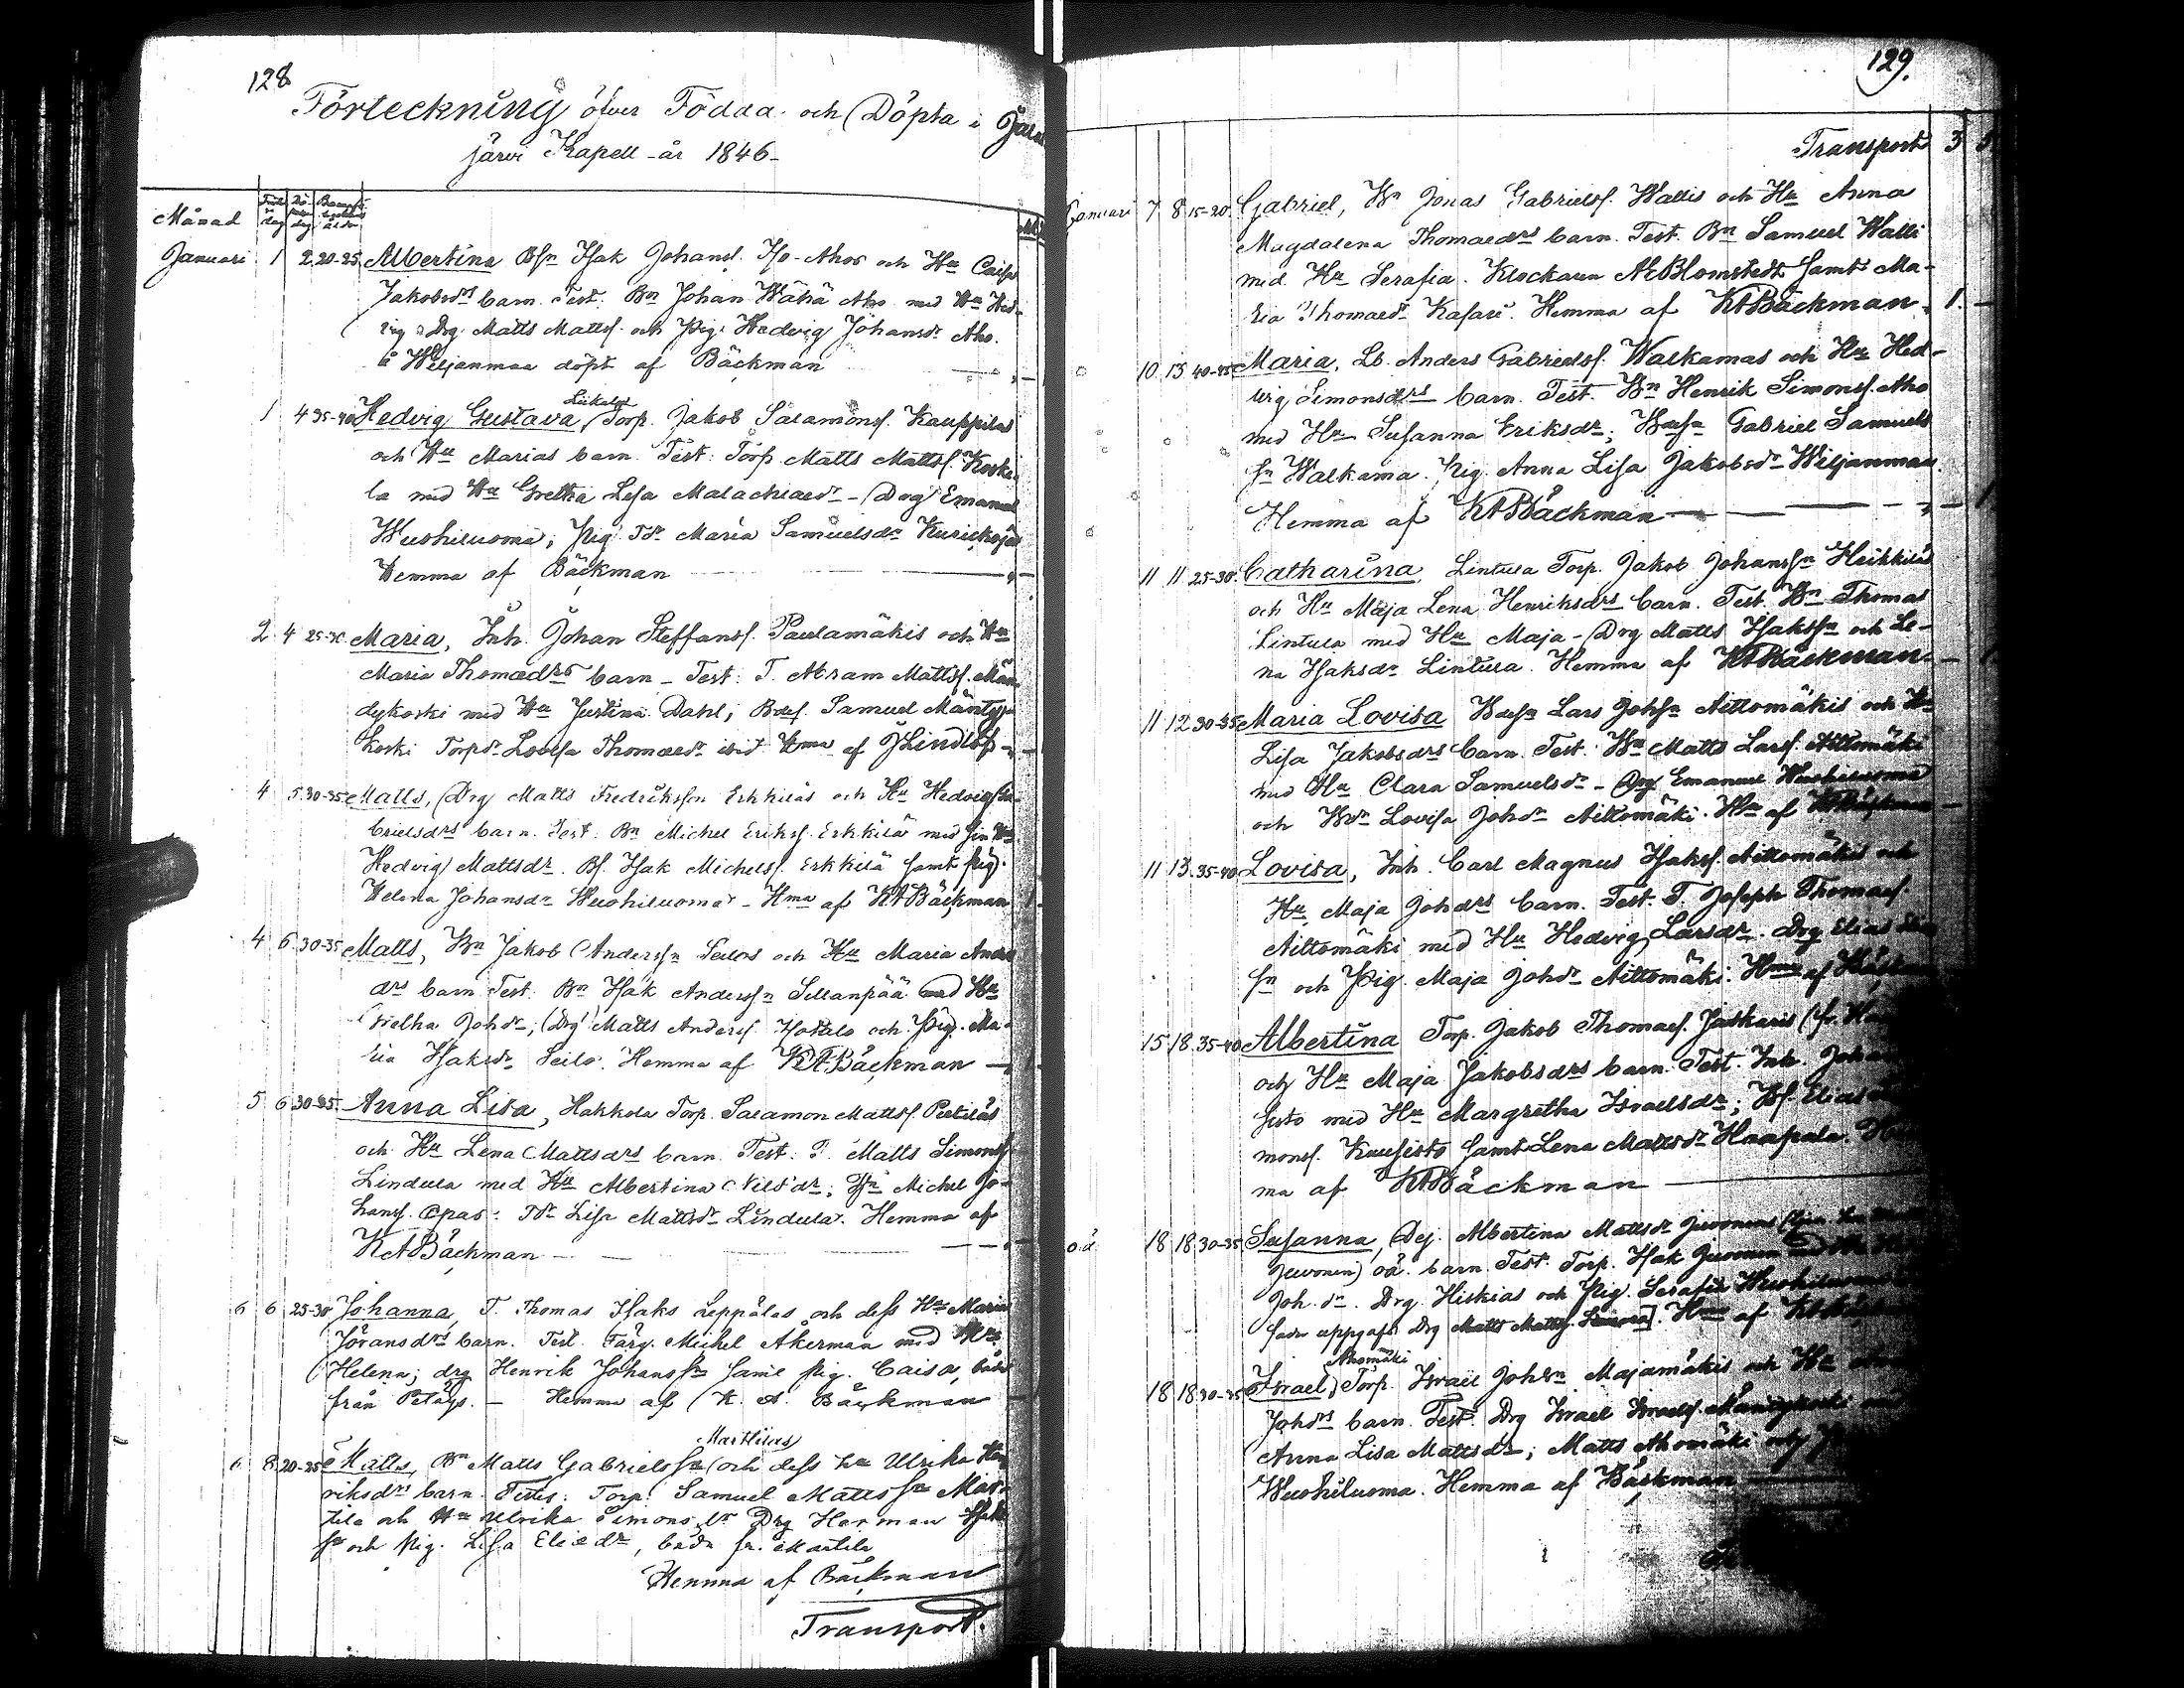 128
Förteckning öfver Födda och Döpta i
järvi Kapell år 1846
Månad Födelse dag Döpelse dag Barnsängs hustruns ålder
Januari 1 2 20-25 Albertina Bsn Isak Johansf. Iso-Ahos och Hu Caisa
Jakobsdrs barn. Test. Bn Johan Wähä Aho med Hu Hed-
vig Drg Matts Mattsf. och Pig. Hedvig Johansdr Aho.
å Wiljanmaa döpt af Bäckman
Liikalas
1 4 35-40 Hedvig Gustava, Torp. Jakob Salamonsf. Kauppilas
och Hu Marias barn. Test. Torp. Matts Mattsf. Koske-
la med Hu Gretha Lisa Malachiaedr - Drg Emanuel
Wuohiluoma; Pig. Tdr Maria Samuelsdr
Hemma af Bäckman
2 4 25-30 Maria, Inh. Johan Steffansf. Paulamäkis och Hu
Maria Thomaedrs barn - Test: T. Abram Mattsf. Män
dykoski med Hu Justina Dahl; Samuel Mänty-
koski Torpdr Lovisa Thomaedr ibid Hma af JLindlöf
4 5 30-35 Matts, Drg Matts Fredriksson Erkkiläs och Hu Hedvig Ga-
brielsdrs barn. Test. Bn Michel Eriksf. Erkkilä med sin Hu
Hedvig Mattsdr. Bs. Isak Michelsf. Erkkilä samt Pig.
Helena Johansdr Wuohiluoma - Hma af KABäckman
4 6 30-35 Matts, Bn Jakob Anderssn Seilos och Hu Maria Anders
drs barn Test. Bn Isak Anderssn Sillanpää med Hu
Gretha Johdr; Drg Matts Andersf. och Pig. Ma-
ria Isaksdr Seilo. Hemma af KABäckman
5 6 30-35 Anna Lisa, Hakkola Torp. Salamon Mattsf. Pietiläs
och Hu Lena Mattsdrs barn. Test. T. Matts Simonsf.
Lindula med Hu Albertina Nilsdr; Michel Jo-
hansf. Tdr Lisa Mattsdr Lindula. Hemma af
KABäckman
6 6 25-30 Johanna, T. Thomas Isaks Leppälas och dess Hu Maria
Jöransdrs barn. Test. Färg. Michel Åkerman med Hu
Helena; drg Henrik Johanssn samt Pig. Caisa, båda
från - Hemma af K. A. Bäckman
Marttilas
6 8 20-25 Matts, Bn Matts Gabrielssn och dess hu Ulrika Hen
riksdrs barn. Testes: Torp. Samuel Mattssn Mar-
tila och Hu Ulrika Simonsdr Drg Herman Isaks
sn och Pig. Lisa Eliædr, båda fr. Martila
Hemma af Bäckman
Transport.
129.
Transport 3
Januari 7 8 15-20 Gabriel, Bn Jonas Gabrielsf. Wallis och Hu Anna
Magdalena Thomaedrs barn. Test. Bn Samuel Walli
med Hu Serafia. Klockaren AEBlomstedt samt Ma-
ria Thomaedr Kasari. Hemma af KABäckman. 1. -
10 13 40-45 Maria, Lb. Anders Gabrielsf. Walkamas och Hu Hed-
vig Simonsdrs barn. Test. Bn Henrik Simonsf. Aho
med Hu Susanna Eriksdr; Gabriel Samuels
sn Walkama. Pig. Anna Lisa Jakobsdr Wiljanmaa
Hemma af KABäckman - 1
11 11 25-30 Catharina, Lintula Torp. Jakob Johanssn Heikkilas
och Hu Maja Lena Henriksdrs barn. Test. Bn Thomas
Lintula med Hu Maja - Drg Matts Isakssn och Le-
na Isaksdr Lintula. Hemma af KABäckman - 1
11 12 30-35 Maria Lovisa Lars Johsn Aittomäkis och Hu
Lisa Jakobsdrs barn. Test. Bn Matts Larsf. Aittomäki
med Hu Clara Samuelsdr - Drg Emanuel Wuohiluoma
och Bdr Lovisa Johdr Aittomäki. Hma af KABäckman -
11 13 35-40 Lovisa, Inh. Carl Magnus Isaksf. Aittomäkis och
Hu Maja Johdrs barn. Test. T. Joseph Thomasf.
Aittomäki med Hu Hedvig Larsdr. Drg Elias
sn och Pig. Maja Johdr Aittomäki. Hma af Bäckman
15 18 35-40 Albertina Torp. Jakob Thomasf. Jaskaris (fr.
och Hu Maja Jakobsdrs barn. Test. Inh. Johan
sisto med Hu Margretha Israelsdr; Bs. Elias
monsf. Kuusisto samt Lena Mattsdr Haapala.
ma af KABäckman
oä 18 18 30-35 Susanna, Dej. Albertina Mattsdr Juvonens
Juvonen) oä. barn. Test. Torp. Isak Juvonen med
Joh. dr. Drg. Hiskias och Pig. Serafia Wuohiluoma
fader uppgafs Drg Matts Mattsf. Hma af KABäckman
Ahomäki
18 18 30-35 Israel, Torp. Israel Johsn Majamäkis och Hu
Johdrs barn. Test. Drg Israel Israelsf. Mäntykoski
Anna Lisa Mattsdr; Matts Ahomäki och
Wuohiluoma. Hemma af Bäckman